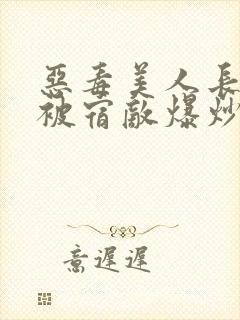 惡毒美人長
被宿敵爆炒
意遲遲